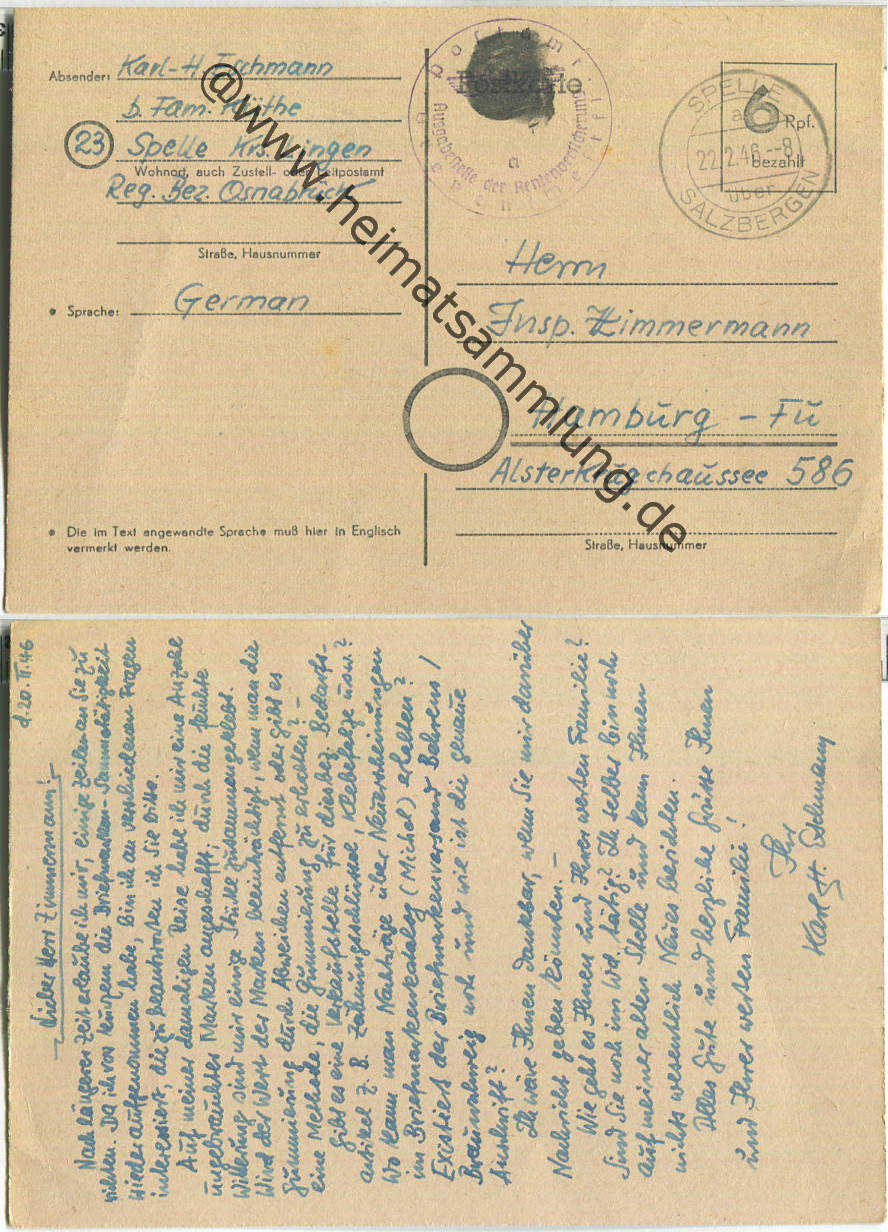 Absender: Karl-H. Tschmann
b. Fam. Köthe
(23) Spelle Krs. Lingen
Wohnort, auch Zustell- oder Leitpostamt
Reg. Bez. Osnabrück
Straße, Hausnummer
• Sprache: German
• Die im Text angewandte Sprache muß hier in Englisch
vermerkt werden.
Postkarte
Ausgabestelle der Rentenversicherung
a
6 Rpf.
bezahlt
SPELLE
a
22.2.46.--8
über
SALZBERGEN
Herrn
Insp. Zimmermann
Hamburg - Fu
Alsterkrugchaussee 586
Straße, Hausnummer
@www.heimatsammlung.de
d. 20. II. 46
Lieber Herr Zimmermann!
Nach längerer Zeit erlaube ich mir, einige Zeilen an Sie zu
richten. Da ich vor kurzem die Briefmarken-Sammeltätigkeit
wieder aufgenommen habe, bin ich an verschiedenen Fragen
interessiert, die zu beantworten ich Sie bitte.
Auf meiner damaligen Reise habe ich mir eine Anzahl
ungebrauchter Marken angeschafft. Durch die feuchte
Witterung sind mir einige Stücke zusammengeklebt.
Wird der Wert der Marken beeinträchtigt, wenn man die
Gummierung durch Abweichen entfernt oder gibt es
eine Methode, die Gummierung zu erhalten? -
Gibt es eine Verkaufsstelle für diesbez. Bedarfs-
artikel z. B. Zähnungsschlüssel, Klebefalze usw.?
Wo kann man Nachträge über Neuerscheinungen
im Briefmarkenkatalog (Michel) erhalten?
Existiert der Briefmarkenversand Behrens /
Braunschweig noch und wie ist die genaue
Anschrift?
Ich wäre Ihnen dankbar, wenn Sie mir darüber
Nachricht geben könnten. -
Wie geht es Ihnen und Ihrer werten Familie?
Sind Sie noch im Wd. tätig? Ich selbst bin noch
auf meiner alten Stelle und kann Ihnen
nichts wesentlich Neues berichten.
Alles Gute und herzliche Grüsse Ihnen
und Ihrer werten Familie!
Ihr
Karl H. Tschmann